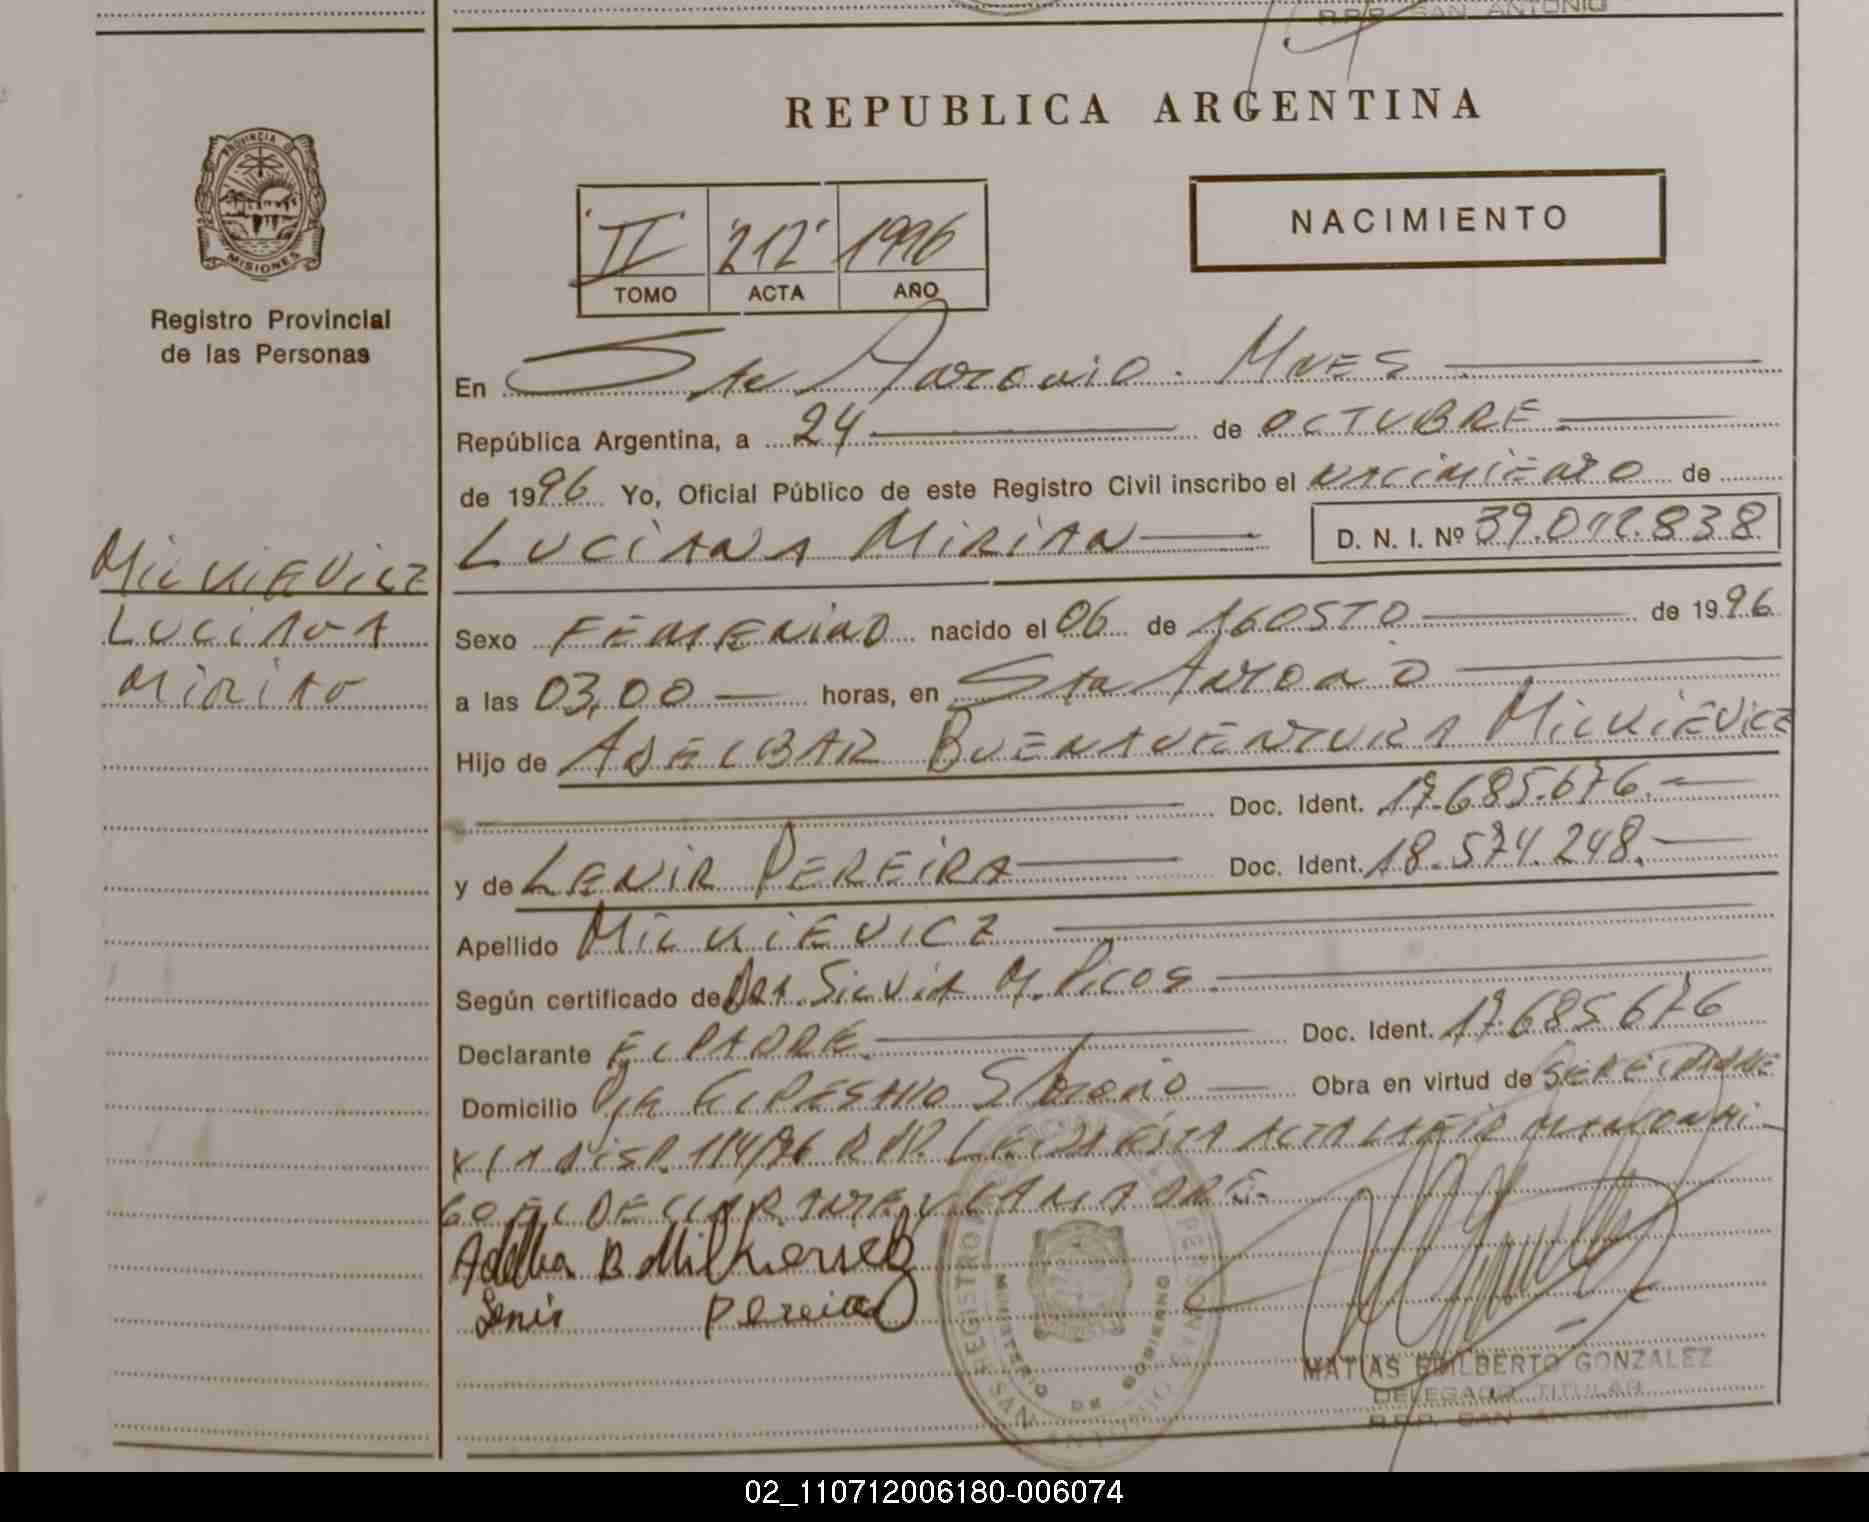 R.P.P. SAN ANTONIO
REPUBLICA ARGENTINA
PROVINCIA DE
MISIONES
Registro Provincial
de las Personas
NACIMIENTO
"II" "212" 1996
TOMO ACTA AÑO
En Sto Antonio - Mnes
República Argentina, a 24 de OCTUBRE
de 1996 Yo, Oficial Público de este Registro Civil inscribo el NACIMIENTO de
LUCIANA MIRIAN D. N. I. Nº 39.012.838
MILKIEVICZ
LUCIANA
MIRIAN
Sexo FEMENINO nacido el 06 de AGOSTO de 1996
a las 03,00 horas, en Sto Antonio
Hijo de ADELBAR BUENAVENTURA MILKIEVICZ
Doc. Ident. 17.685.676.
y de LENIR PEREIRA Doc. Ident. 18.574.248.
Apellido MILKIEVICZ
Según certificado de DRA. SILVIA M. PICOS.
Declarante EL PADRE. Doc. Ident. 17.685.676
Domicilio Obra en virtud de
X LA DISP. 114/96 R.P.P. LEIDA ESTA ACTA LA FIRMAN CONMI-
GO EL DECLARANTE Y LA MADRE.-
Adelba B Milkievicz
Lenir Pereira
REGISTRO PERSONAS
MINISTERIO DE GOBIERNO
SAN ANTONIO
MATIAS EDILBERTO GONZALEZ
DELEGADO TITULAR
R.P.P. SAN ANTONIO
02_110712006180-006074